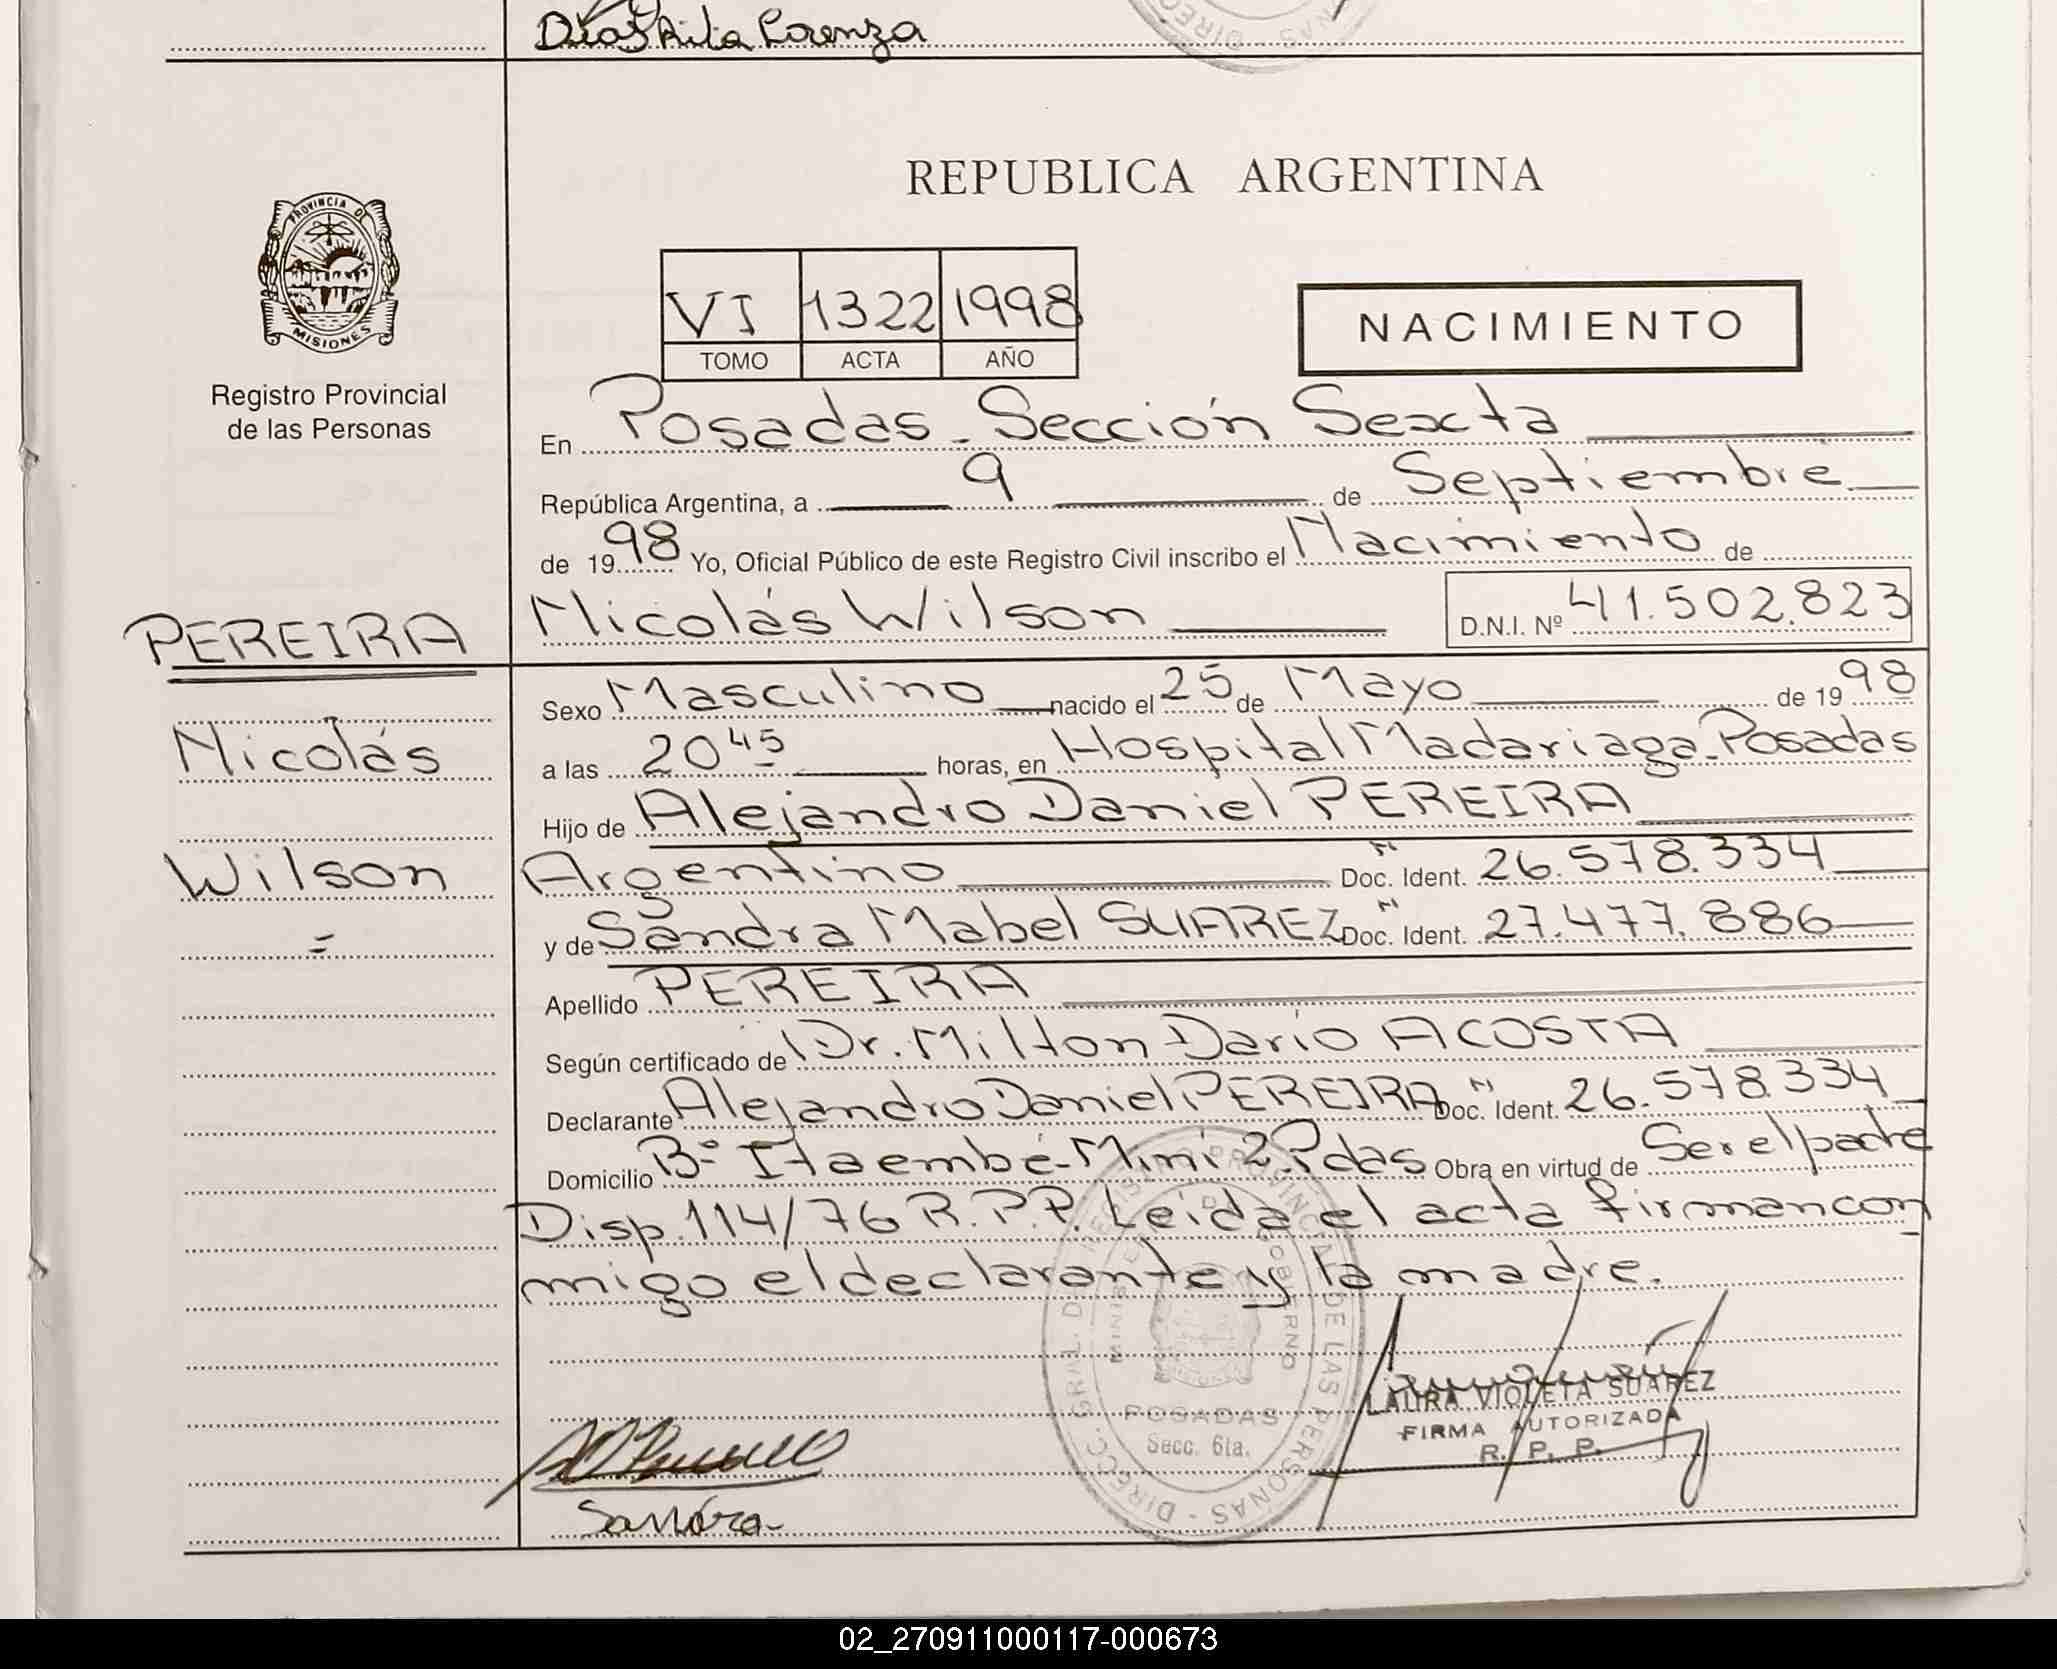 Rita Lorenza
REPUBLICA ARGENTINA
PROVINCIA DE MISIONES
Registro Provincial
de las Personas
VI 1322 1998
TOMO ACTA AÑO
NACIMIENTO
En Posadas - Sección Sexta
República Argentina, a 9 de Septiembre
de 1998 Yo, Oficial Público de este Registro Civil inscribo el Nacimiento de
PEREIRA
Nicolás Wilson D.N.I. Nº 41.502.823
Sexo Masculino nacido el 25 de Mayo de 1998
Nicolás
a las 20 45 horas, en Hospital Madariaga - Posadas
Hijo de Alejandro Daniel PEREIRA
Wilson
Argentino Doc. Ident. 26.578.334
y de Sandra Mabel SUAREZ Doc. Ident. 27.477.886
Apellido PEREIRA
Según certificado de Dr. Milton Dario ACOSTA
Declarante Alejandro Daniel PEREIRA Doc. Ident. 26.578.334
Domicilio Bº Itaembé-Mini 2. Pdas Obra en virtud de Ser el padre
Disp. 114/76 R.P.P. Leida el acta firman con
migo el declarante y la madre.
DIREC. GRAL. DE REGISTRO PROVINCIAL DE LAS PERSONAS
MINISTERIO DE GOBIERNO
POSADAS
Secc. 6ta.
LAURA VIOLETA SUAREZ
FIRMA AUTORIZADA
R. P. P.
Sandra
02_270911000117-000673